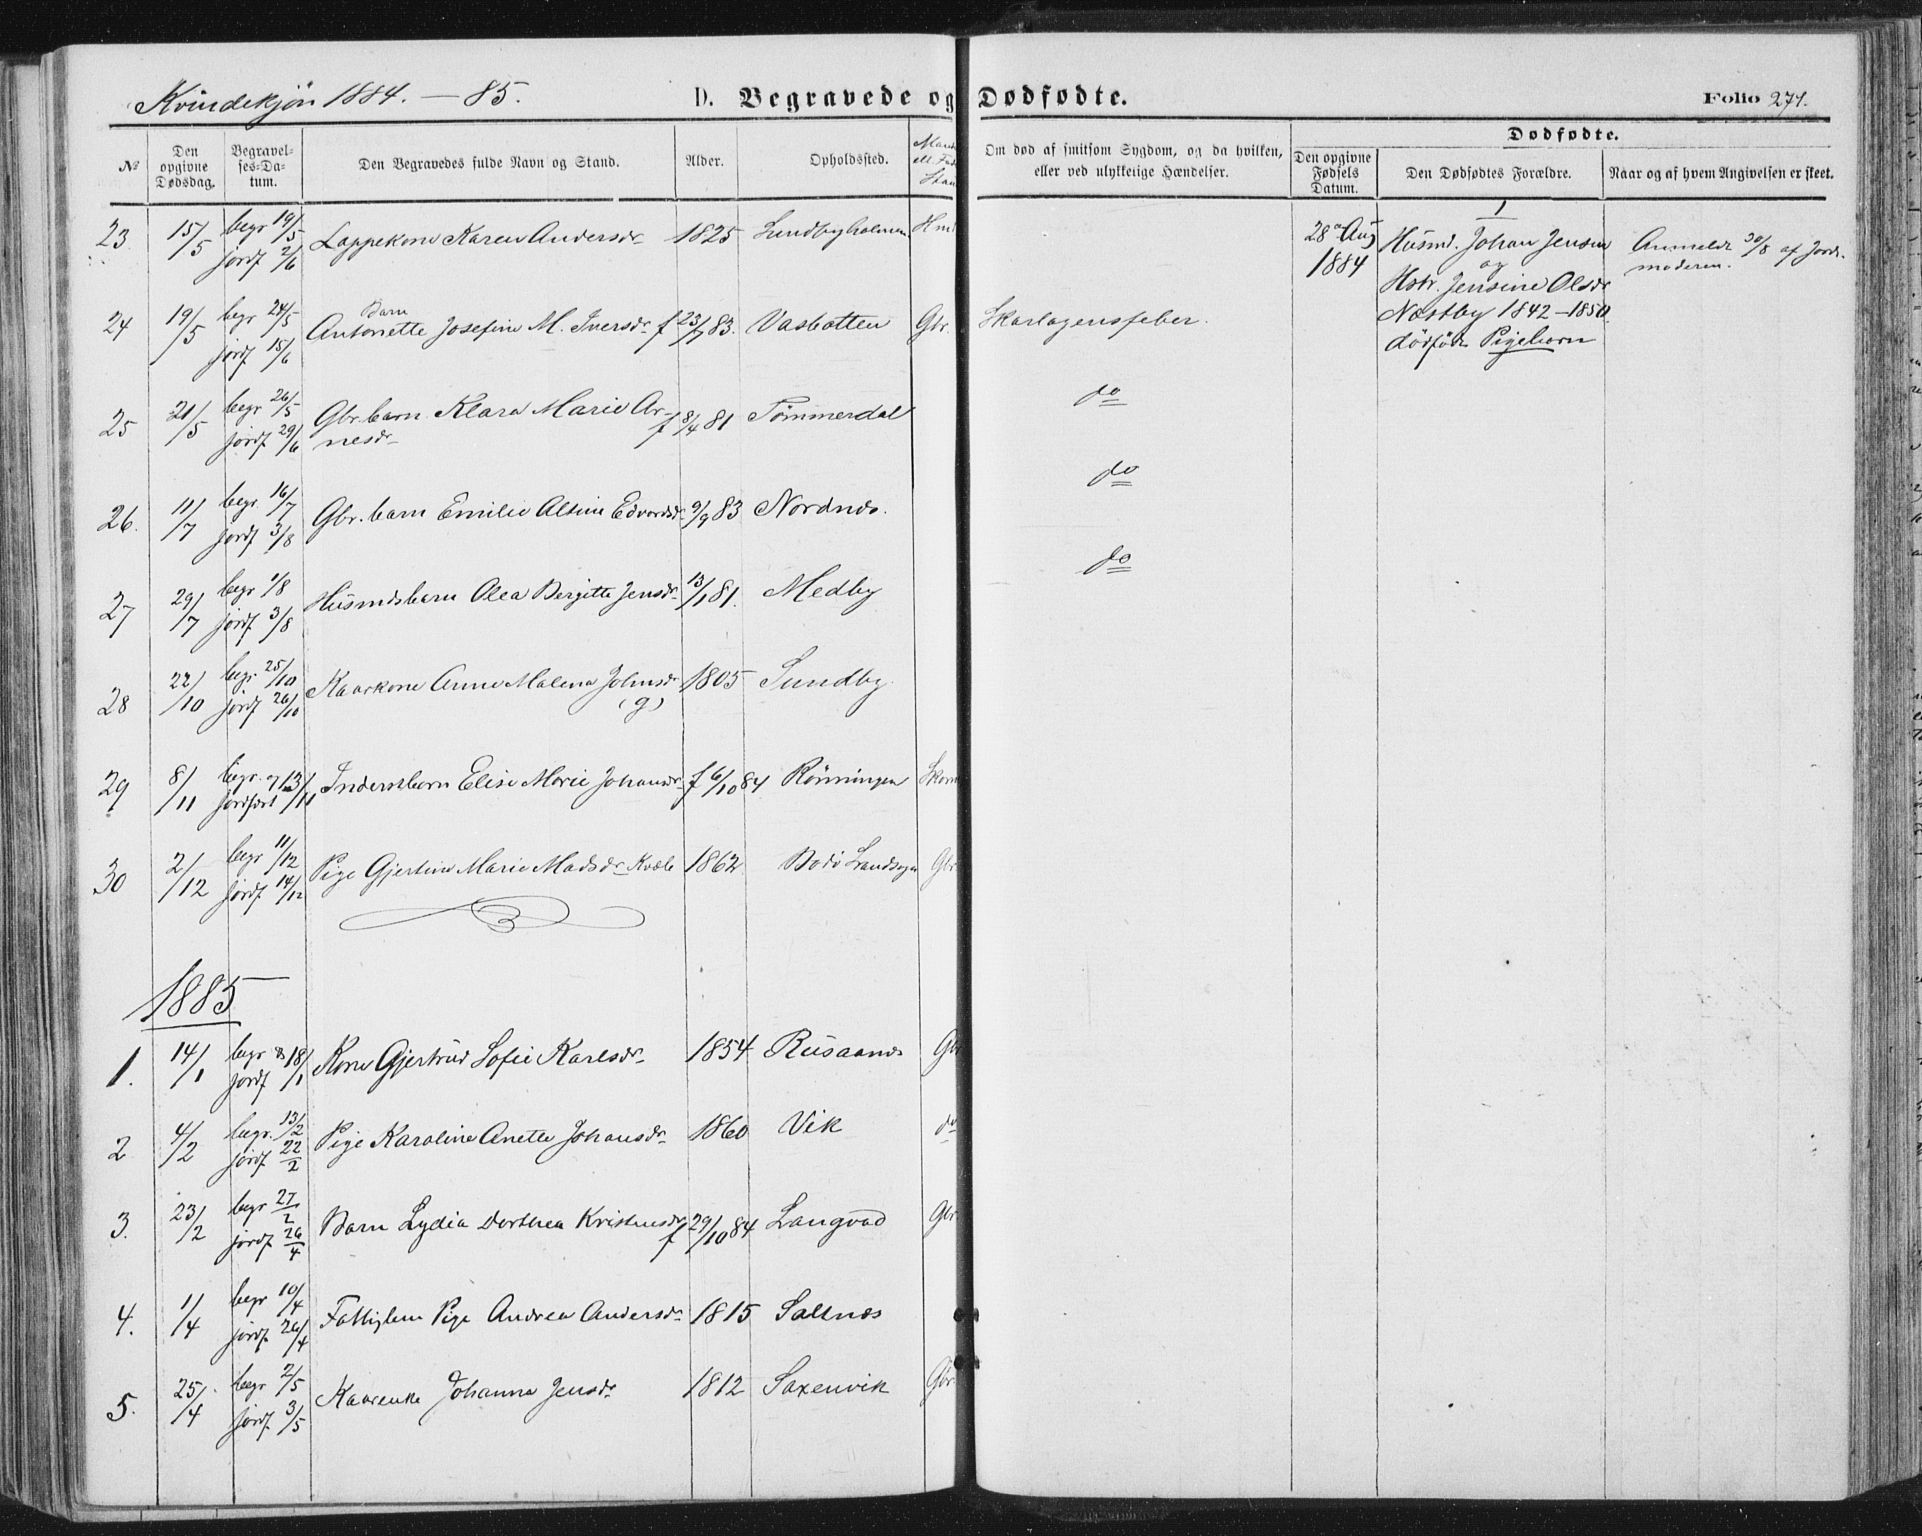 Kvindekjön 1884. — 85.
D. Begravede og Dødfødte.
Folio 271.
No
Den opgivne Dødsdag.
Begravelses-Datum.
Den Begravedes fulde Navn og Stand.
Alder.
Opholdssted.
Om død af smitsom Sygdom, og da hvilken, eller ved ulykkelige Hændelser.
Dødfødte.
Den opgivne Fødsels Datum.
Den Dødfødtes Forældre.
Naar og af hvem Angivelsen er skeet.
23. 15/5 begr 19/5 jordf 2/6 Lappekone Karen Andersdr 1825 Sundbyholmen
24 19/5 begr 24/5 jordf 15/6 Barn Antonette Josefine M. Iversdr f 23/7 83. Vasbotten Gbr. Skarlagensfeber.
25 21/5 begr 26/5 jordf 29/6 Gbr.barn Klara Marie Arnesdr f 8/4 81 Tömmerdal do
26. 11/7 begr 16/7 jordf 3/8 Gbr.barn Emilie Alsine Edvardsdr 9/9 83 Nordnes. do
27 29/7 begr 1/8 jordf 3/8 Husmdsbarn Olea Bergitte Jensdr 13/1 81. Medby do
28 22/10 begr 25/10 jordf 26/10 Kaarkone Anne Malena Johnsdr (g) 1805 Sundby.
29 8/11 begr. og jordfæst 13/11 Inderstbarn Elise Marie Johansdr f 6/10 84 Rönningen
30 2/12 begr 11/12 jordf 14/12 Pige Gjertine Marie Madsdr Kvæle 1862 Bodö Landsogn Gbr
28de Aug 1884
1
Husmd. Johan Jensen
og
Hstr. Jensine Olsdr
Næstby 1842 – 1850.
dödfödt Pigebarn
Anmeldt 30/8 af Jordmoderen.
1885
1. 14/1 begr & jordf 18/1 Kone Gjertrud Sofie Karlsdr 1854 Rusaanes Gbr
2 4/2 begr. 13/2 jordf 22/2 Pige Karoline Anette Johansdr 1860 Vik do
3. 23/2 begr 27/2 jordf 26/4 Barn Lydia Dorthea Kristensdr f 29/10 84 Langvad Gbr.
4. 1/4 begr 10/4 jordf. 26/4 Fattiglem Pige Andrea Andersdr 1815 Saltnes
5. 25/4 begr 2/5 jordf. 3/5 Kaarenke Johanna Jensdr 1812 Saxenvik Gbr.